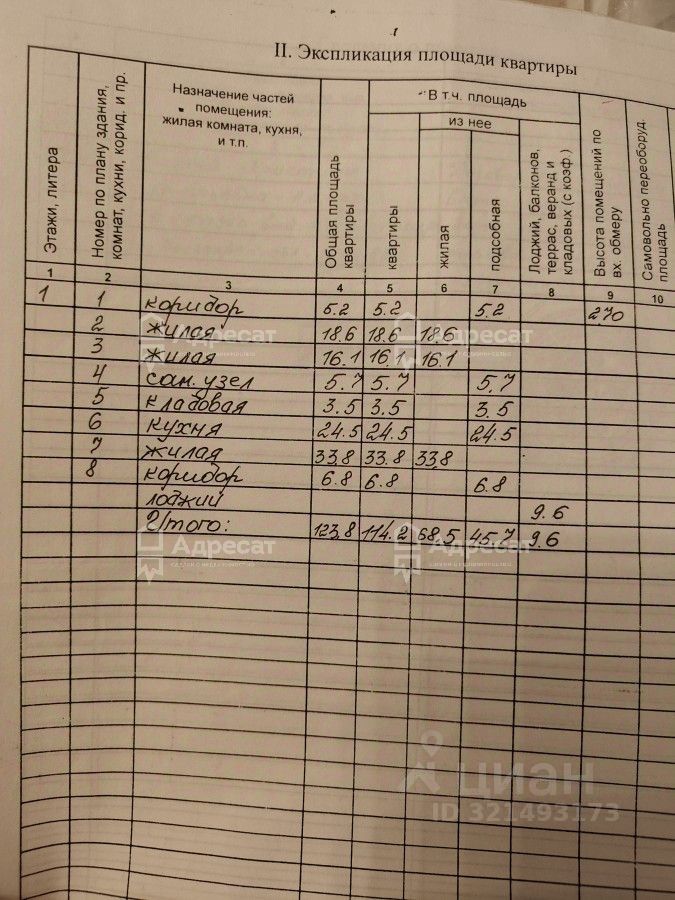 II. Экспликация площади квартиры
Этажи, литера
Номер по плану здания, комнат, кухни, корид. и пр.
Назначение частей помещения: жилая комната, кухня, и т.п.
Общая площадь квартиры
В т.ч. площадь
из нее
квартиры
жилая
подсобная
Лоджий, балконов, террас, веранд и кладовых (с коэф)
Высота помещений по вх. обмеру
Самовольно переоборуд. площадь
1 2 3 4 5 6 7 8 9 10
1 1 коридор 5.2 5.2 5.2 270
2 жилая 18.6 18.6 18.6
3 жилая 16.1 16.1 16.1
4 сан.узел 5.7 5.7 5.7
5 кладовая 3.5 3.5 3.5
6 кухня 24.5 24.5 24.5
7 жилая 33.8 33.8 33.8
8 коридор 6.8 6.8 6.8
лоджий 9.6
Итого: 123.8 114.2 68.5 45.7 9.6
Адресат
Адресат
Адресат
Адресат
циан
ID 321493173